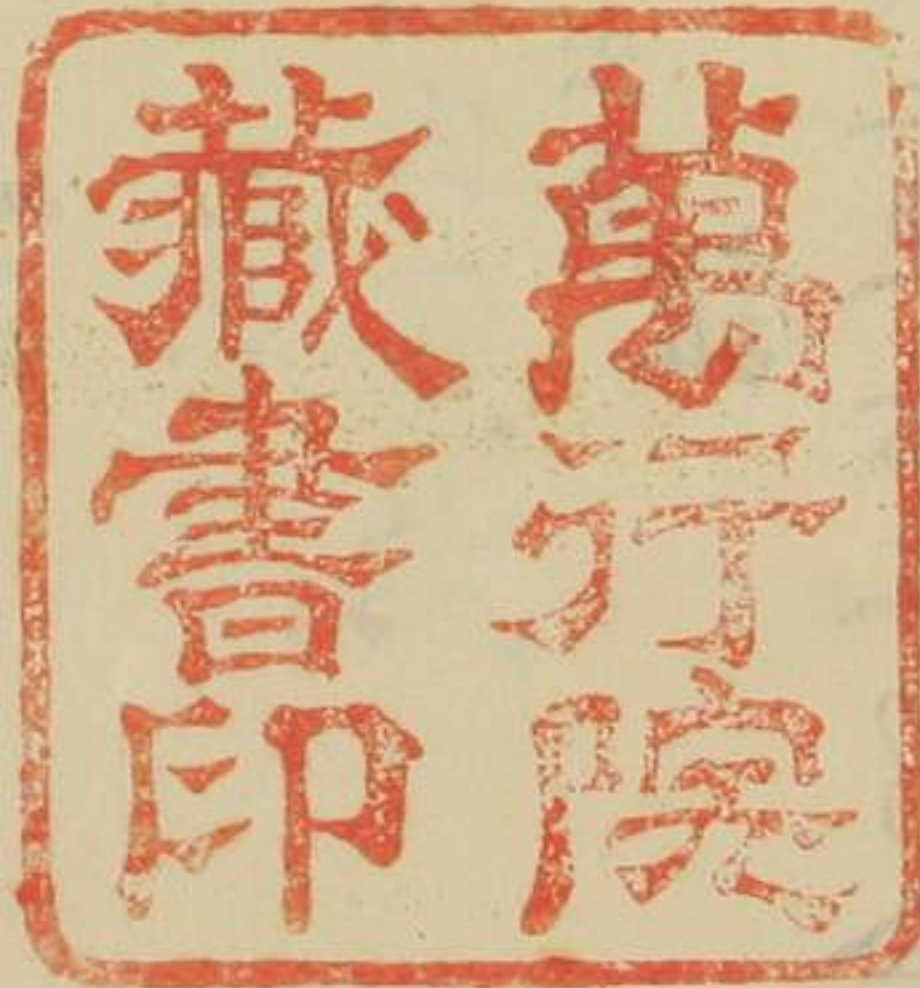 萬行院
藏書印